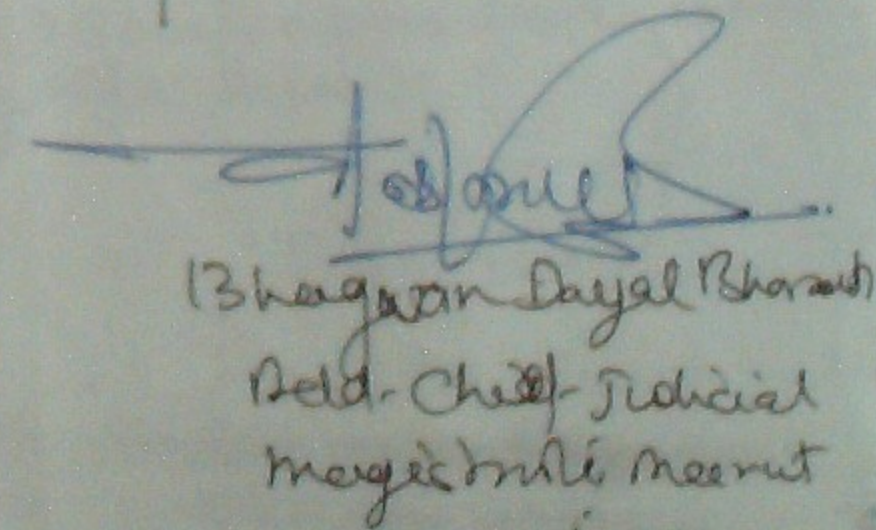 Bhagwan Dayal Bharati
Addl. Chief Judicial
Magistrate Meerut